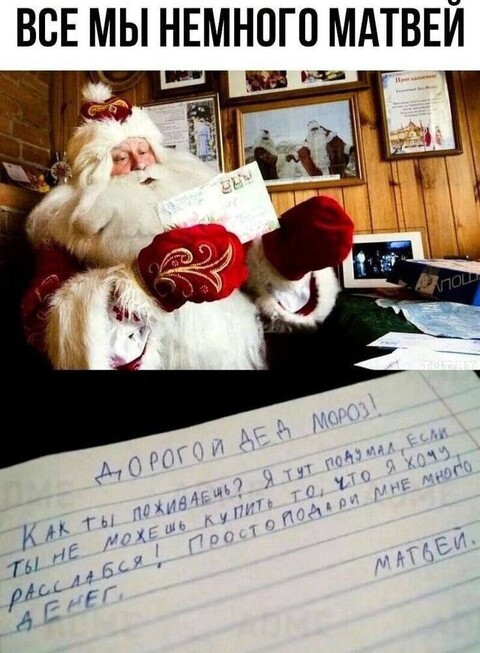 ВСЕ МЫ НЕМНОГО МАТВЕЙ
Приглашение
ДОРОГОЙ ДЕД МОРОЗ!
КАК ТЫ ПОЖИВАЕШЬ? Я ТУТ ПОДУМАЛ, ЕСЛИ
ТЫ НЕ МОЖЕШЬ КУПИТЬ ТО, ЧТО Я ХОЧУ,
РАССЛАБСЯ! ПРОСТО ПОДАРИ МНЕ МНОГО
ДЕНЕГ.
МАТВЕЙ.